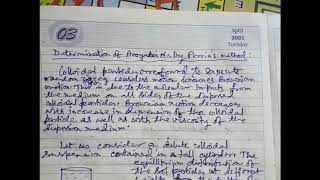 03
April
2001
Tuesday
Determination of Avogadro No by Perrin's Method:
Colloidal particles are found to execute
random zigzag ceaseless motion
motion. This is due to the
the medium on all sides of the dispersed
colloidal particles. Brownian motion decreases
with increase in dimension of the colloidal
particle as well as with the viscosity of the
dispersion medium.
Let us consider a dilute colloidal
suspension contained in a tall cylinder. The
equilibrium distribution of
the sol particles at different